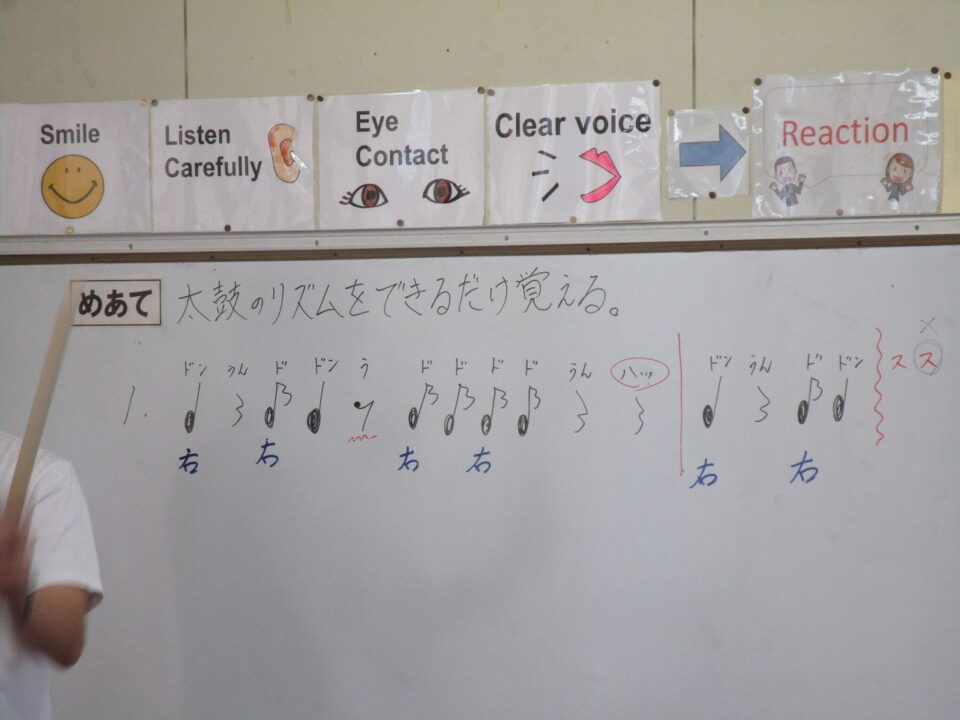 Smile
Listen Carefully
Eye Contact
Clear voice
Reaction
めあて 太鼓のリズムをできるだけ覚える。
ドン うん ド ドン う ド ド ド ド うん ハッ ドン うん ド ドン ス ス
1.
右 右 右 右 右 右